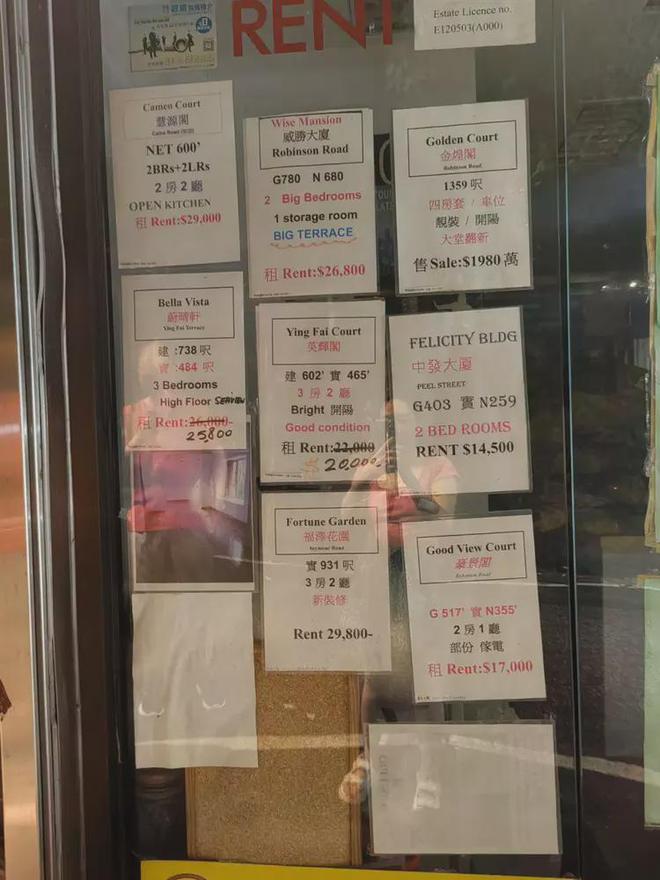 RENT
Estate Licence no.
E120503(A000)
Cameo Court
慧源閣
NET 600'
2BRs+2LRs
2 房 2 廳
OPEN KITCHEN
租 Rent:$29,000
Wise Mansion
威勝大廈
Robinson Road
G780 N 680
2 Big Bedrooms
1 storage room
BIG TERRACE
租 Rent:$26,800
Golden Court
金煌閣
Robinson Road
1359 呎
四房套 / 車位
靚裝 / 開陽
大堂翻新
售 Sale:$1980 萬
Bella Vista
蔚晴軒
Ying Fai Terrace
建 :738 呎
實 :484 呎
3 Bedrooms
High Floor SEAVIEW
租 Rent:26,000-
25,800
Ying Fai Court
英輝閣
建 602' 實 465'
3 房 2 廳
Bright 開陽
Good condition
租 Rent:22,000
$ 20,000-
FELICITY BLDG
中發大廈
PEEL STREET
G403 實 N259
2 BED ROOMS
RENT $14,500
Fortune Garden
福澤花園
Seymour Road
實 931 呎
3 房 2 廳
新裝修
Rent 29,800-
Good View Court
豪景閣
Robinson Road
G 517' 實 N355'
2 房 1 廳
部份 傢電
租 Rent:$17,000